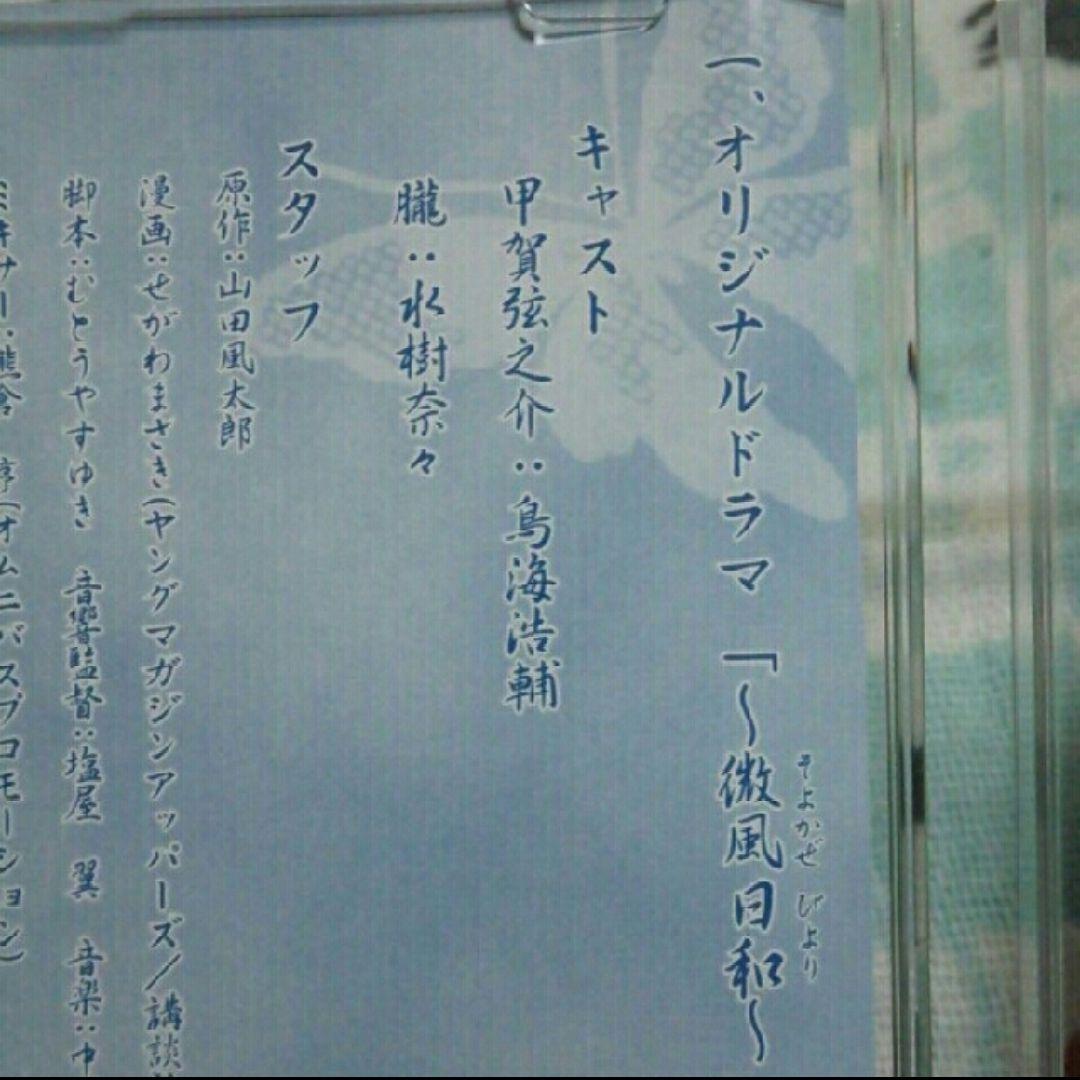 一、オリジナルドラマ 「〜微風日和〜
そよかぜ びより
キャスト
甲賀弦之介：鳥海浩輔
朧：水樹奈々
スタッフ
原作：山田風太郎
漫画：せがわまさき(ヤングマガジンアッパーズ／講談
脚本：むとうやすゆき 音響監督：塩屋 翼 音楽：中
ミキサー：熊倉 亨(オムニバスプロモーション)